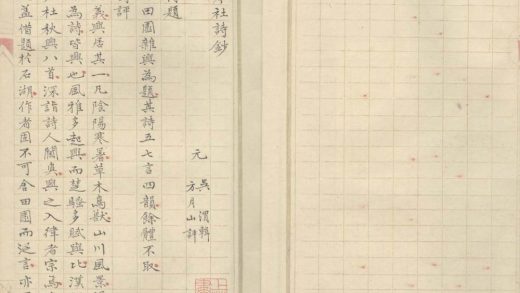 社詩鈔
元 吳渭輯
方月山評
題
田園雜興為題其詩五七言四韻餘體不取
評
義興居其一凡陰陽寒暑草木鳥獸山川風景
為詩皆興也風雅多起興而楚騷多賦與比漢
杜秋興八首深詣詩人閫奧興之入律者宗焉
蓋借題於石湖作者固不可舍田園而泛言亦